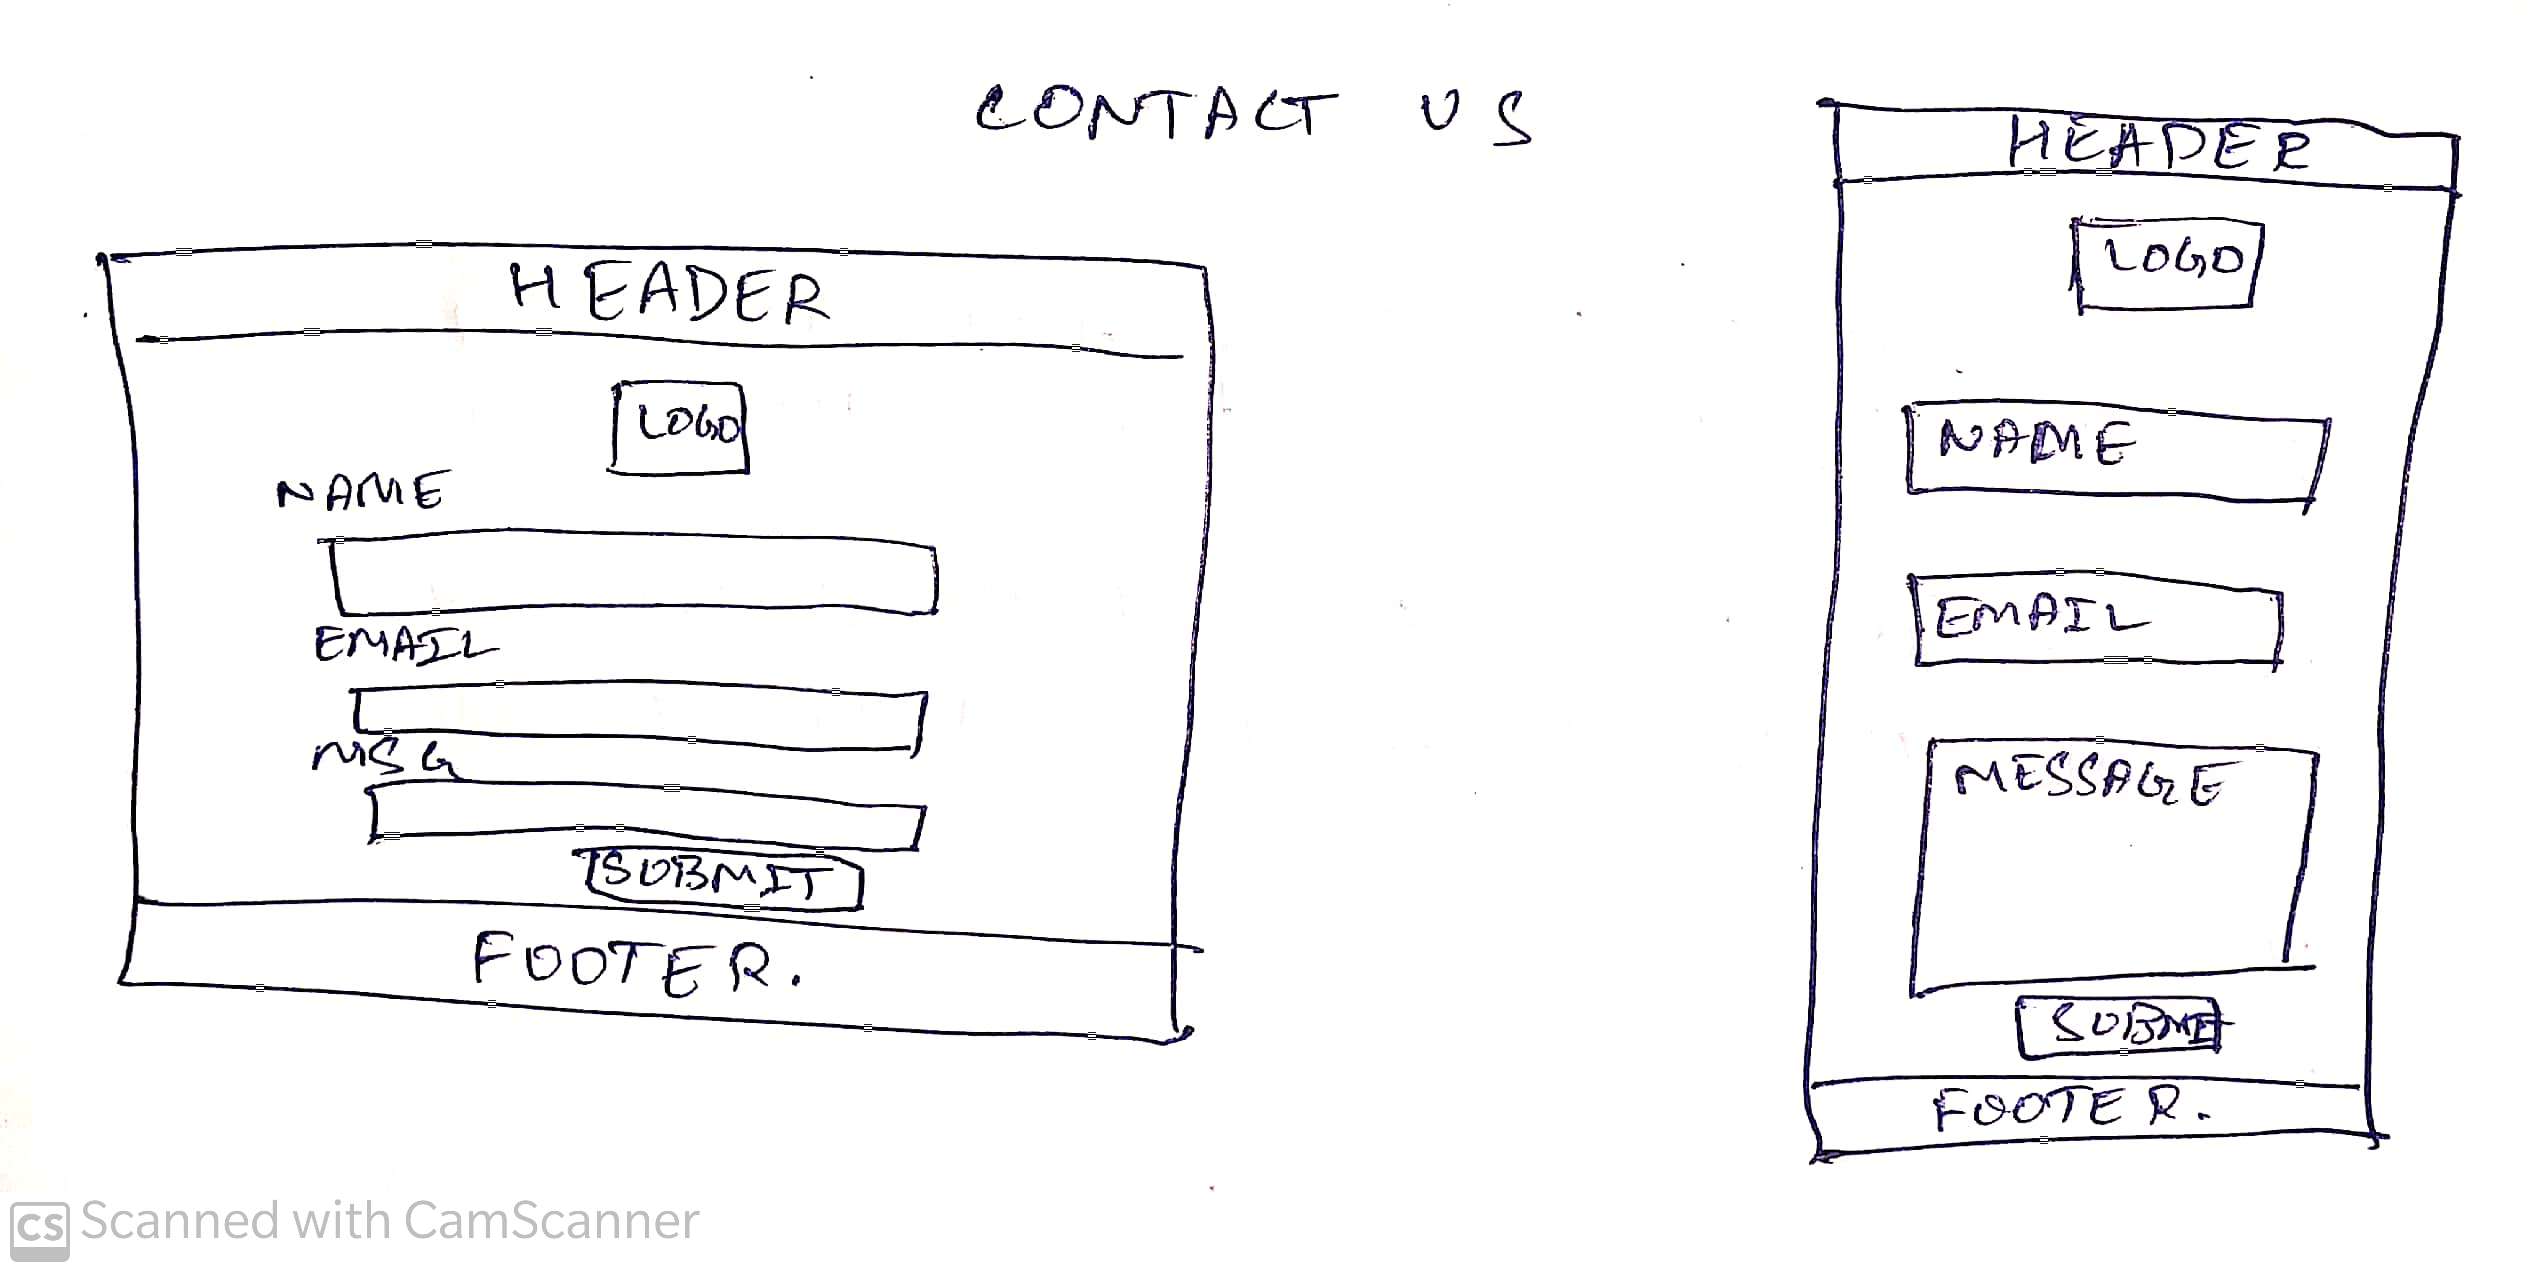 CONTACT US
HEADER
LOGO
NAME
EMAIL
MSG
SUBMIT
FOOTER.
HEADER
LOGO
NAME
EMAIL
MESSAGE
SUBMIT
FOOTER.
CS Scanned with CamScanner